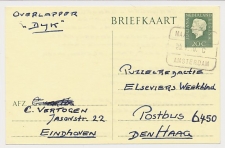 OVERLAPPER
"DYK"
BRIEFKAART
20 c
AMSTERDAM
PUZZELREDACTIE
ELSEVIERS WEEKBLAD
POSTBUS 6450
DEN HAAG
AFZ.
C. VERTOGEN
JASONSTR. 22
EINDHOVEN